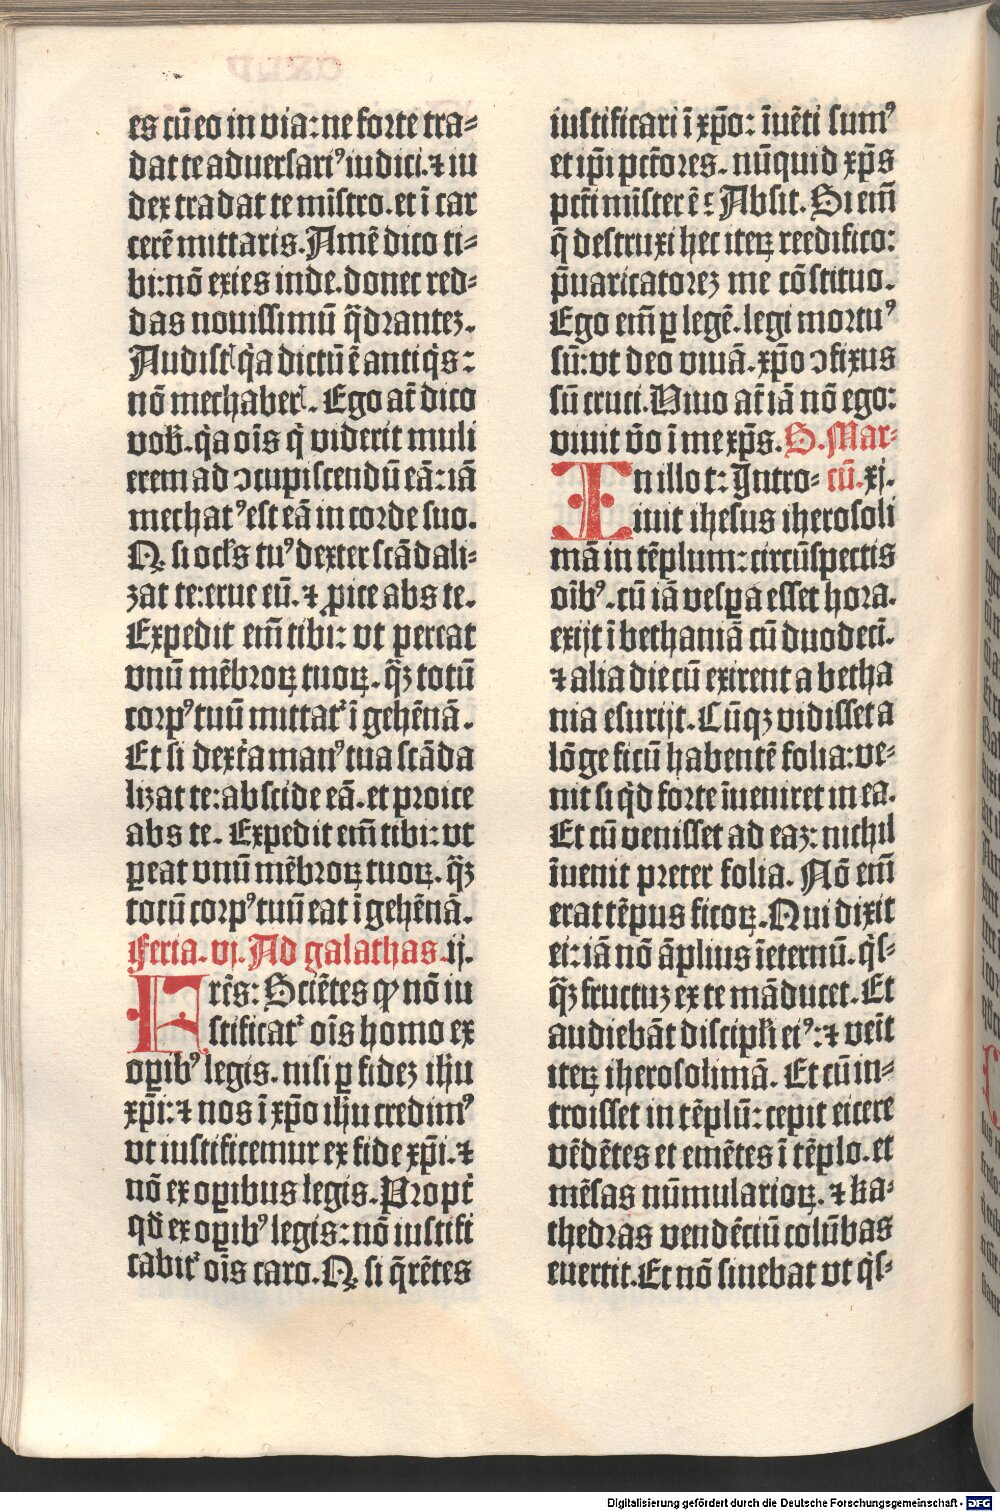 es cū eo in via: ne forte tra⸗
dat te aduersariꝰ iudici. ⁊ iu
dex tradat te mīstro. et ī car
cerē mittaris. Amē dico ti⸗
bi: nō exies inde. donec red⸗
das nouissimū q̄drantez.
Audistꝭ q̇a dictū ē antiq̇s:
nō mechaberꝭ. Ego at̄ dico
vob̄. q̇a oīs q̇ viderit muli
erem ad ↄcupiscendū eā: iā
mechatꝰ est eā in corde suo.
Qꝫ si ocl̄s tuꝰ dexter scādali⸗
zat te: erue eū. ⁊ ꝓice abs te.
Expedit em̄ tibi: vt pereat
vnū mēbroꝝ tuoꝝ. q̄ꝫ totū
corpꝰ tuū mittat᷑ ī gehēnā.
Et si dext̄a manꝰ tua scāda
lizat te: abscide eā. et proice
abs te. Expedit em̄ tibi: vt
ꝑeat vnū mēbroꝝ tuoꝝ. q̄ꝫ
totū corpꝰ tuū eat ī gehēnā.
Feria. vj. Ad galathas. ij.
Frēs: Sciētes ꝙ nō iu
stificat᷑ oīs homo ex
oꝑibꝰ legis. nisi ꝑ fidez ihū
xp̄i: ⁊ nos ī xp̄o ihū credimꝰ
vt iustificemur ex fide xp̄i. ⁊
nō ex oꝑibus legis. Propt̄
qd̄ ex oꝑibꝰ legis: nō iustifi
cabit᷑ oīs caro. Qꝫ si q̄rētes
iustificari ī xp̄o: īuēti sumꝰ
et ip̄i pctōres. nūquid xp̄s
pctī mīster ē? Absit. Si em̄
q̄ destruxi hec iteꝝ reedifico:
p̄uaricatorez me cōstituo.
Ego em̄ ꝑ legē. legi mortuꝰ
sū: vt deo viuā. xp̄o ↄfixus
sū cruci. Viuo at̄ iā nō ego:
viuit v̄o ī me xp̄s. S. Mar⸗
In illo t: Intro⸗ cū. xj.
iuit ihesus iherosoli
mā in tēplum: circūspectis
oībꝰ. cū iā vesꝑa esset hora.
exijt ī bethaniā cū duodecī.
⁊ alia die cū exirent a betha
nia esurijt. Cūqꝫ vidisset a
lōge ficū habentē folia: ve⸗
nit si q̇d forte īueniret in ea.
Et cū venisset ad eaz: nichil
īuenit preter folia. Nō em̄
erat tēpus ficoꝝ. Qui dixit
ei: iā nō āplius īeternū. q̇s⸗
q̄ꝫ fructuz ex te māducet. Et
audiebāt discipl̄i eiꝰ: ⁊ veīt
iteꝝ iherosolimā. Et cū in⸗
troisset in tēplū: cepit eicere
vēdētes et emētes ī tēplo. et
mēsas nūmularioꝝ. ⁊ ka⸗
thedras vendētiū colūbas
euertit. Et nō sinebat vt q̇s⸗
Digitalisierung gefördert durch die Deutsche Forschungsgemeinschaft - DFG